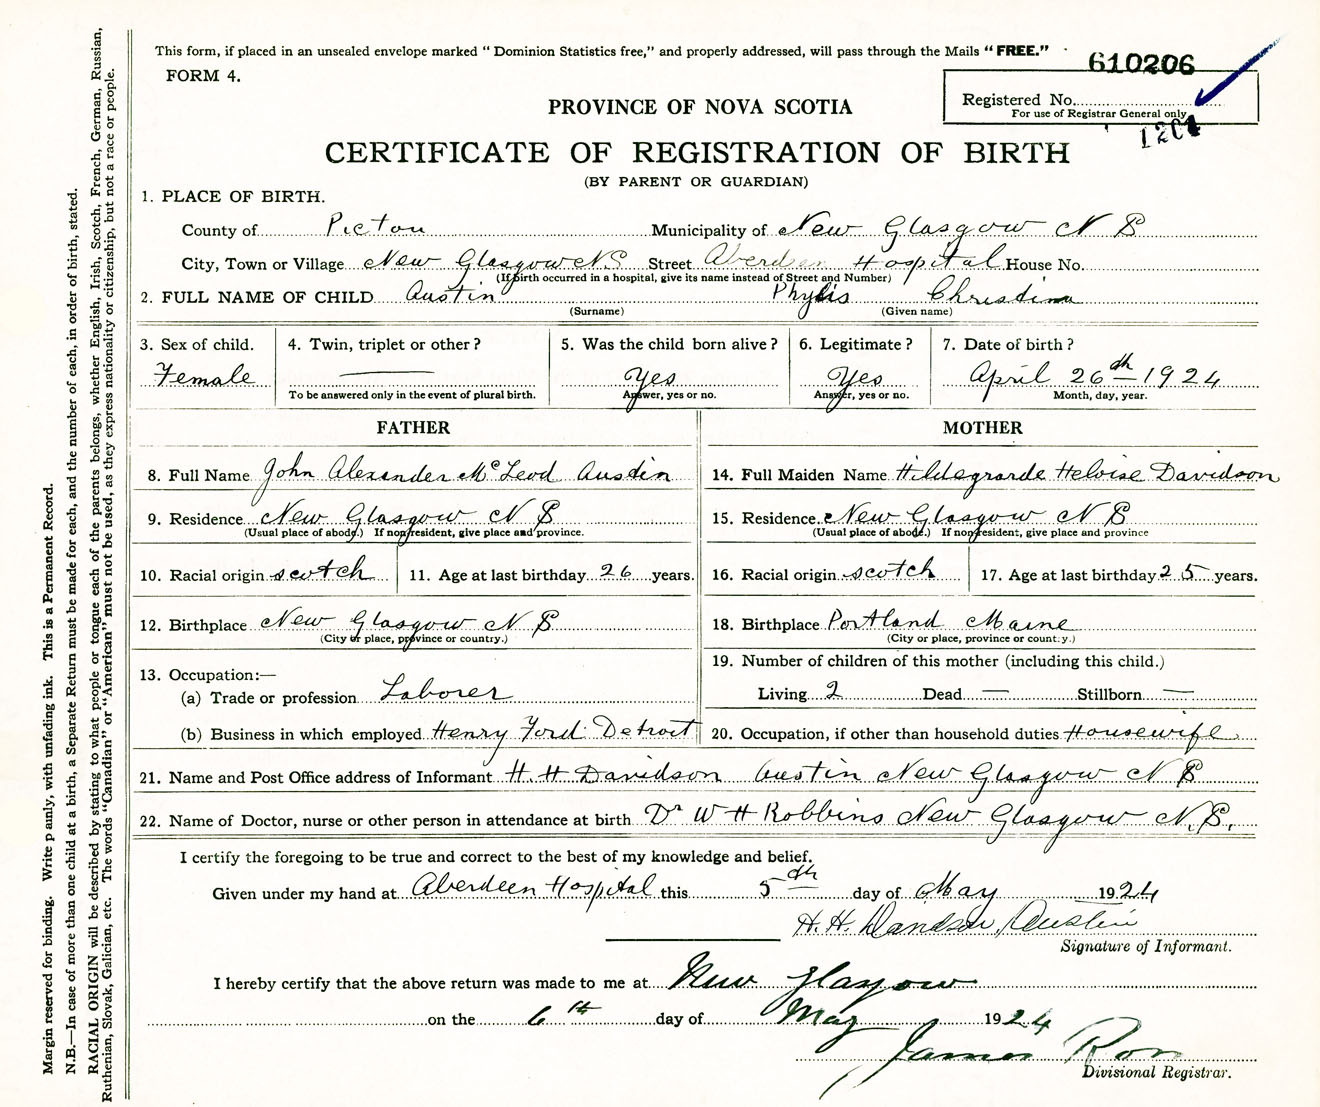 This form, if placed in an unsealed envelope marked " Dominion Statistics free," and properly addressed, will pass through the Mails "FREE."
610206
FORM 4.
Registered No.
For use of Registrar General only
PROVINCE OF NOVA SCOTIA
CERTIFICATE OF REGISTRATION OF BIRTH
(BY PARENT OR GUARDIAN)
1. PLACE OF BIRTH.
County of Picton Municipality of New Glasgow N S
City, Town or Village New Glasgow N S Street Aberdeen Hospital House No.
(If birth occurred in a hospital, give its name instead of Street and Number)
2. FULL NAME OF CHILD Austin Phylis Christina
(Surname) (Given name)
3. Sex of child. 4. Twin, triplet or other? 5. Was the child born alive? 6. Legitimate? 7. Date of birth?
Female — Yes Yes April 26th 1924
To be answered only in the event of plural birth. Answer, yes or no. Answer, yes or no. Month, day, year.
FATHER MOTHER
8. Full Name John Alexander McLeod Austin 14. Full Maiden Name Hildegrarde Heloise Davidson
9. Residence New Glasgow N S 15. Residence New Glasgow N S
(Usual place of abode.) If nonresident, give place and province. (Usual place of abode.) If nonresident, give place and province
10. Racial origin scotch 11. Age at last birthday 26 years. 16. Racial origin scotch 17. Age at last birthday 25 years.
12. Birthplace New Glasgow N S 18. Birthplace Portland Maine
(City or place, province or country.) (City or place, province or country.)
13. Occupation:— 19. Number of children of this mother (including this child.)
(a) Trade or profession Laborer Living 2 Dead — Stillborn —
(b) Business in which employed Henry Ford Detroit 20. Occupation, if other than household duties Housewife
21. Name and Post Office address of Informant H. H Davidson Austin New Glasgow N S
22. Name of Doctor, nurse or other person in attendance at birth Dr W H Robbins New Glasgow N.S.
I certify the foregoing to be true and correct to the best of my knowledge and belief.
Given under my hand at Aberdeen Hospital this 5th day of May 1924
H. H. Davidson Austin
Signature of Informant.
I hereby certify that the above return was made to me at New Glasgow
on the 6th day of May 1924
James
Divisional Registrar.
Margin reserved for binding. Write p ainly, with unfading ink. This is a Permanent Record.
N.B.—In case of more than one child at a birth, a Separate Return must be made for each, and the number of each, in order of birth, stated.
RACIAL ORIGIN will be described by stating to what people or tongue each of the parents belongs, whether English, Irish, Scotch, French, German, Russian,
Ruthenian, Slovak, Galician, etc. The words "Canadian" or "American" must not be used, as they express nationality or citizenship, but not a race or people.